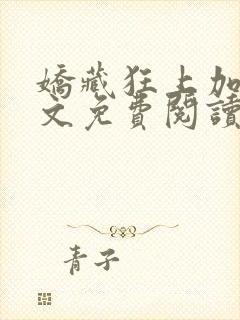 嬌藏狂上加
文免費閱讀
青子